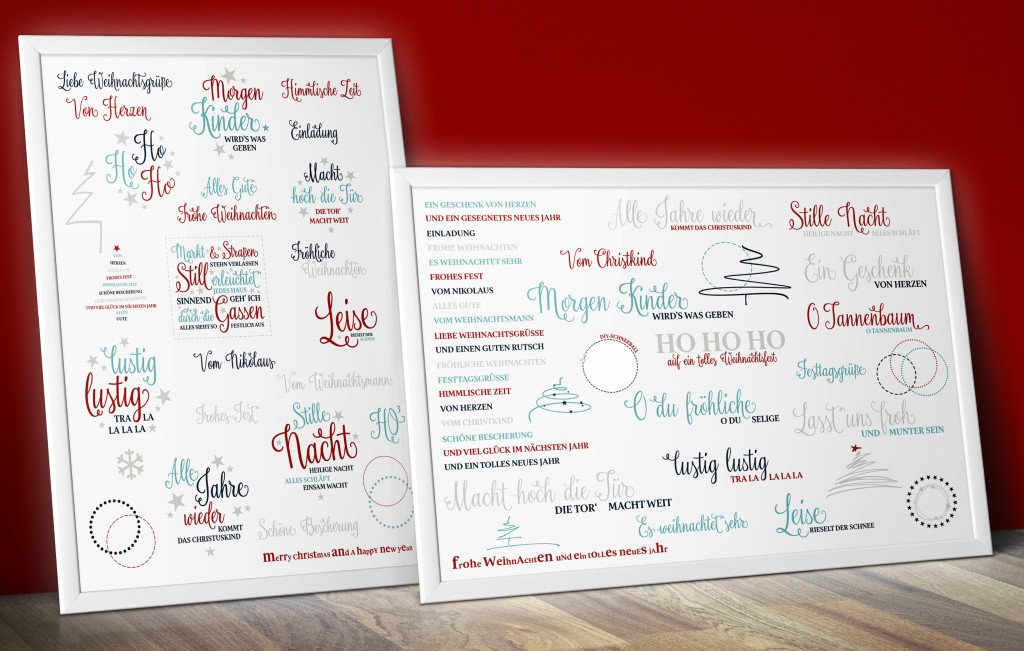 Liebe Weihnachtsgrüße
Von Herzen
Morgen
Kinder
WIRD'S WAS
GEBEN
Himmlische Zeit
Einladung
Ho
Ho
Ho
Alles Gute
Frohe Weihnachten
Macht
hoch die Tür
DIE TOR'
MACHT WEIT
VON
HERZEN
ALLES GUTE
FROHES FEST
HIMMLISCHE ZEIT
SCHÖNE BESCHERUNG
UND VIEL GLÜCK IM NÄCHSTEN JAHR
ALLES
GUTE
Markt & Straßen
STEHN VERLASSEN
Still erleuchtet
JEDES HAUS
SINNEND GEH' ICH
durch die Gassen
ALLES SIEHT SO FESTLICH AUS
Fröhliche
Weihnachten
Leise
RIESELT DER
SCHNEE
lustig
lustig
TRA LA
LA LA LA
Vom Nikolaus
Vom Weihnachtsmann
Frohes Fest
Stille
Nacht
HEILIGE NACHT
ALLES SCHLÄFT
EINSAM WACHT
HO³
Alle
Jahre
wieder
KOMMT
DAS CHRISTUSKIND
Schöne Bescherung
merry christmas and a happy new year
EIN GESCHENK VON HERZEN
UND EIN GESEGNETES NEUES JAHR
EINLADUNG
FROHE WEIHNACHTEN
ES WEIHNACHTET SEHR
FROHES FEST
VOM NIKOLAUS
ALLES GUTE
VOM WEIHNACHTSMANN
LIEBE WEIHNACHTSGRÜSSE
UND EINEN GUTEN RUTSCH
FRÖHLICHE WEIHNACHTEN
FESTTAGSGRÜSSE
HIMMLISCHE ZEIT
VON HERZEN
VOM CHRISTKIND
SCHÖNE BESCHERUNG
UND VIEL GLÜCK IM NÄCHSTEN JAHR
UND EIN TOLLES NEUES JAHR
Alle Jahre wieder
KOMMT DAS CHRISTUSKIND
Stille Nacht
HEILIGE NACHT ALLES SCHLÄFT
Vom Christkind
Ein Geschenk
VON HERZEN
Morgen Kinder
WIRD'S WAS GEBEN
O Tannenbaum
O TANNENBAUM
DIY-SCHNEEBALL
HO HO HO
auf ein tolles Weihnachtsfest
Festtagsgrüße
O du fröhliche
O DU SELIGE
Lasst uns froh
UND MUNTER SEIN
lustig lustig
TRA LA LA LA LA
Macht hoch die Tür
DIE TOR' MACHT WEIT
Es weihnachtet sehr
Leise
RIESELT DER SCHNEE
frohe Weihnachten und ein tolles neues jahr